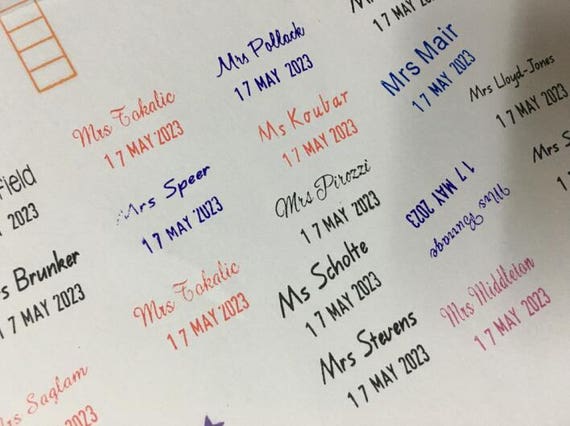 Mrs Pollack
17 MAY 2023
Mrs Mair
17 MAY 2023
Mrs Lloyd-Jones
17 MAY 2023
Mrs Tokalic
17 MAY 2023
Ms Koubar
17 MAY 2023
Field
2023
Mrs Speer
17 MAY 2023
Mrs Pirozzi
17 MAY 2023
Mrs Burrage
17 MAY 2023
Mrs S
17
s Brunker
17 MAY 2023
Mrs Tokalic
17 MAY 2023
Ms Scholte
17 MAY 2023
Mrs Stevens
17 MAY 2023
Mrs Middleton
17 MAY 2023
Mrs Saglam
2023
17 MAY